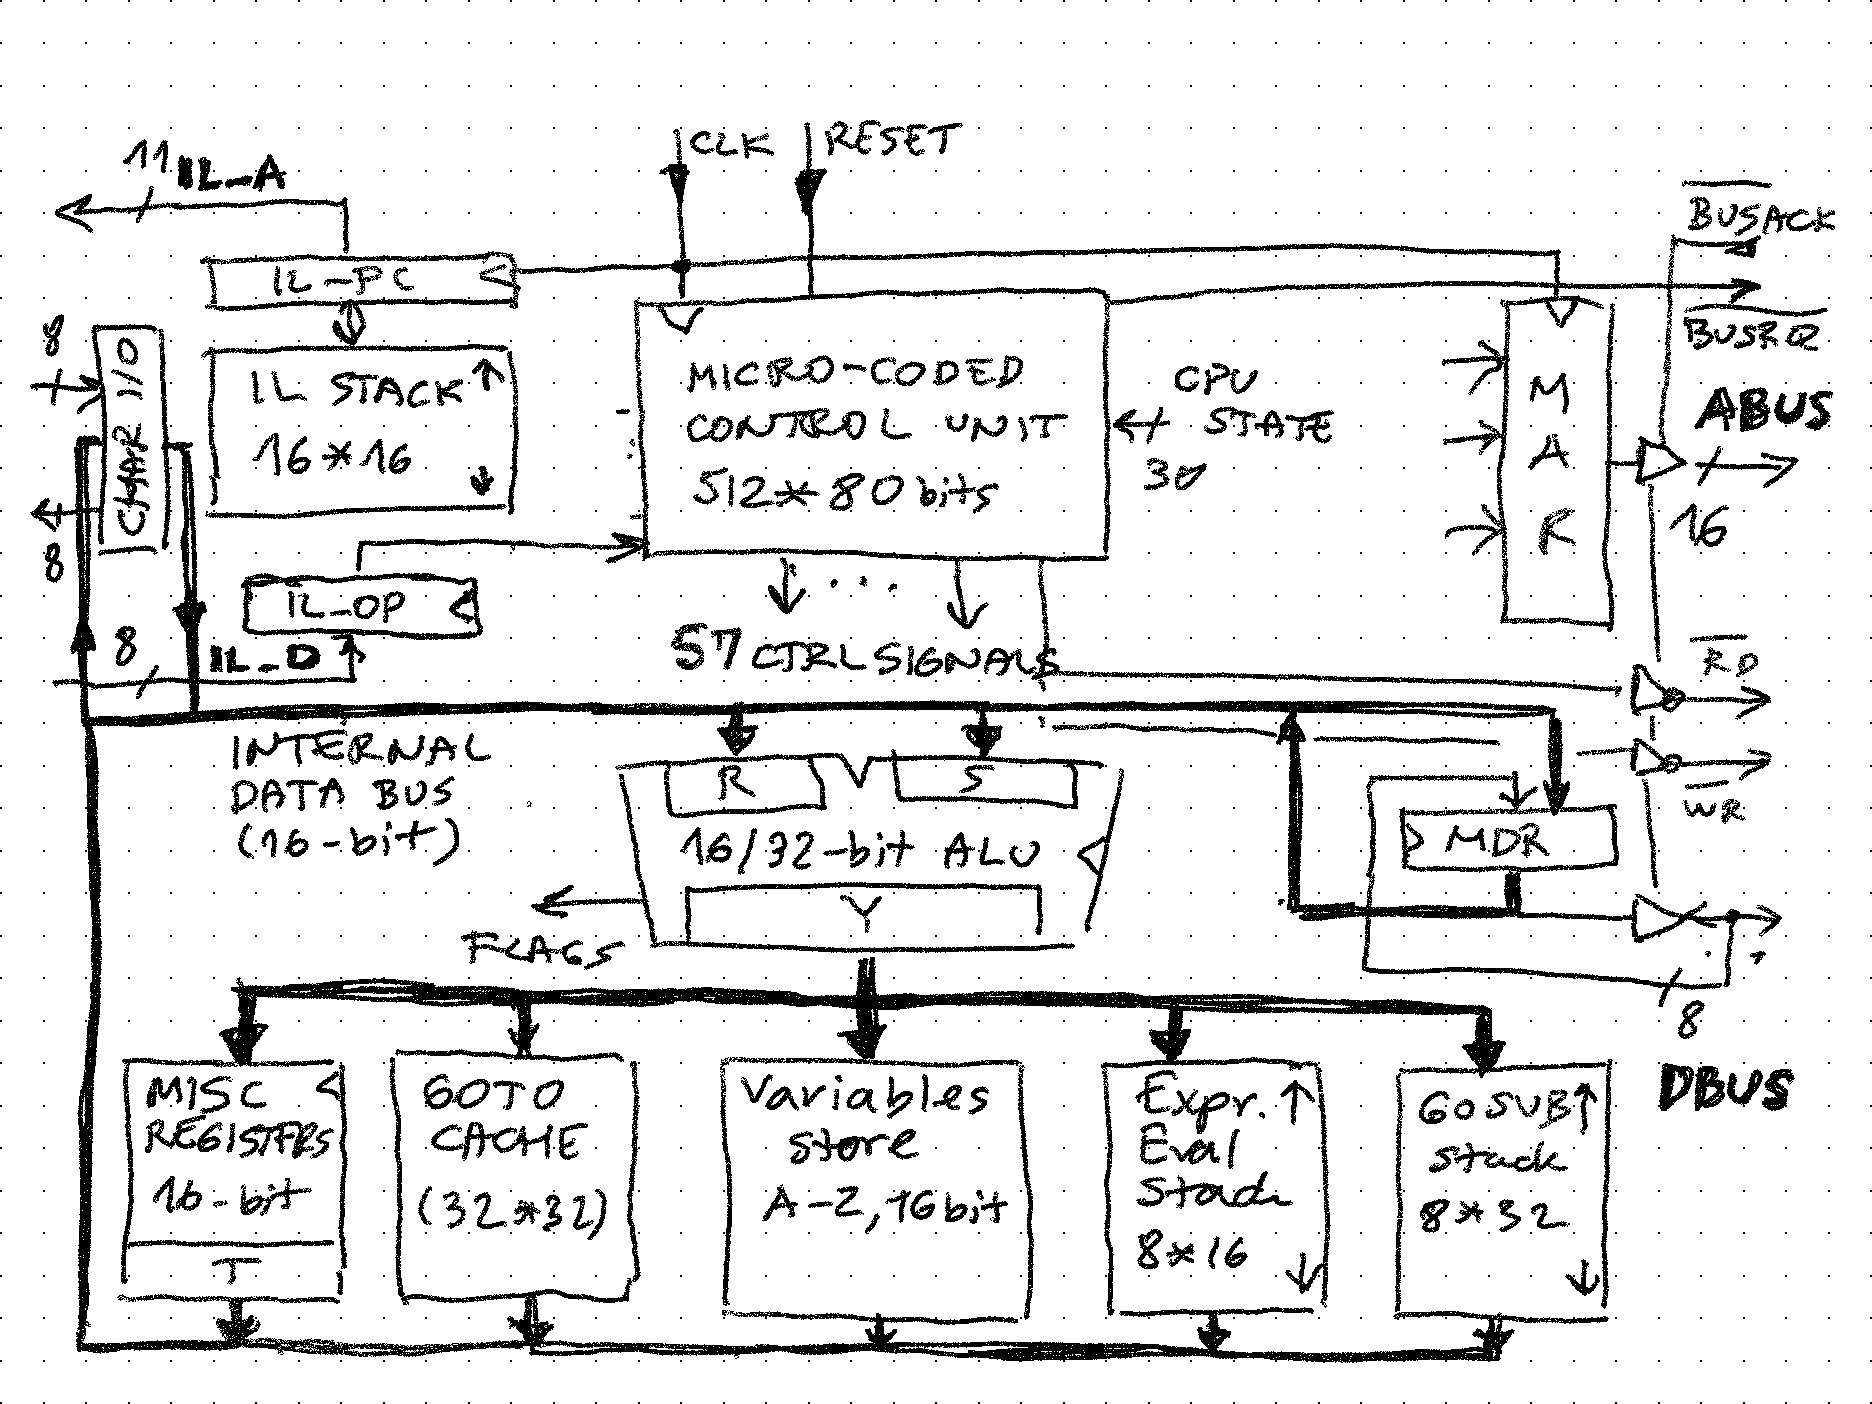 11 IL_A
CLK
RESET
BUSACK
IL_PC
BUSRQ
8
CHAR I/O
8
IL STACK
16*16
MICRO-CODED
CONTROL UNIT
512*80 bits
CPU
STATE
30
MAR
ABUS
16
IL_OP
8
IL_D
57 CTRL SIGNALS
RD
INTERNAL
DATA BUS
(16-bit)
R
S
16/32-bit ALU
Y
FLAGS
WR
MDR
8
DBUS
MISC
REGISTERS
16-bit
T
GOTO
CACHE
(32*32)
Variables
store
A-Z, 16bit
Expr.
Eval
Stack
8*16
GOSUB
stack
8*32